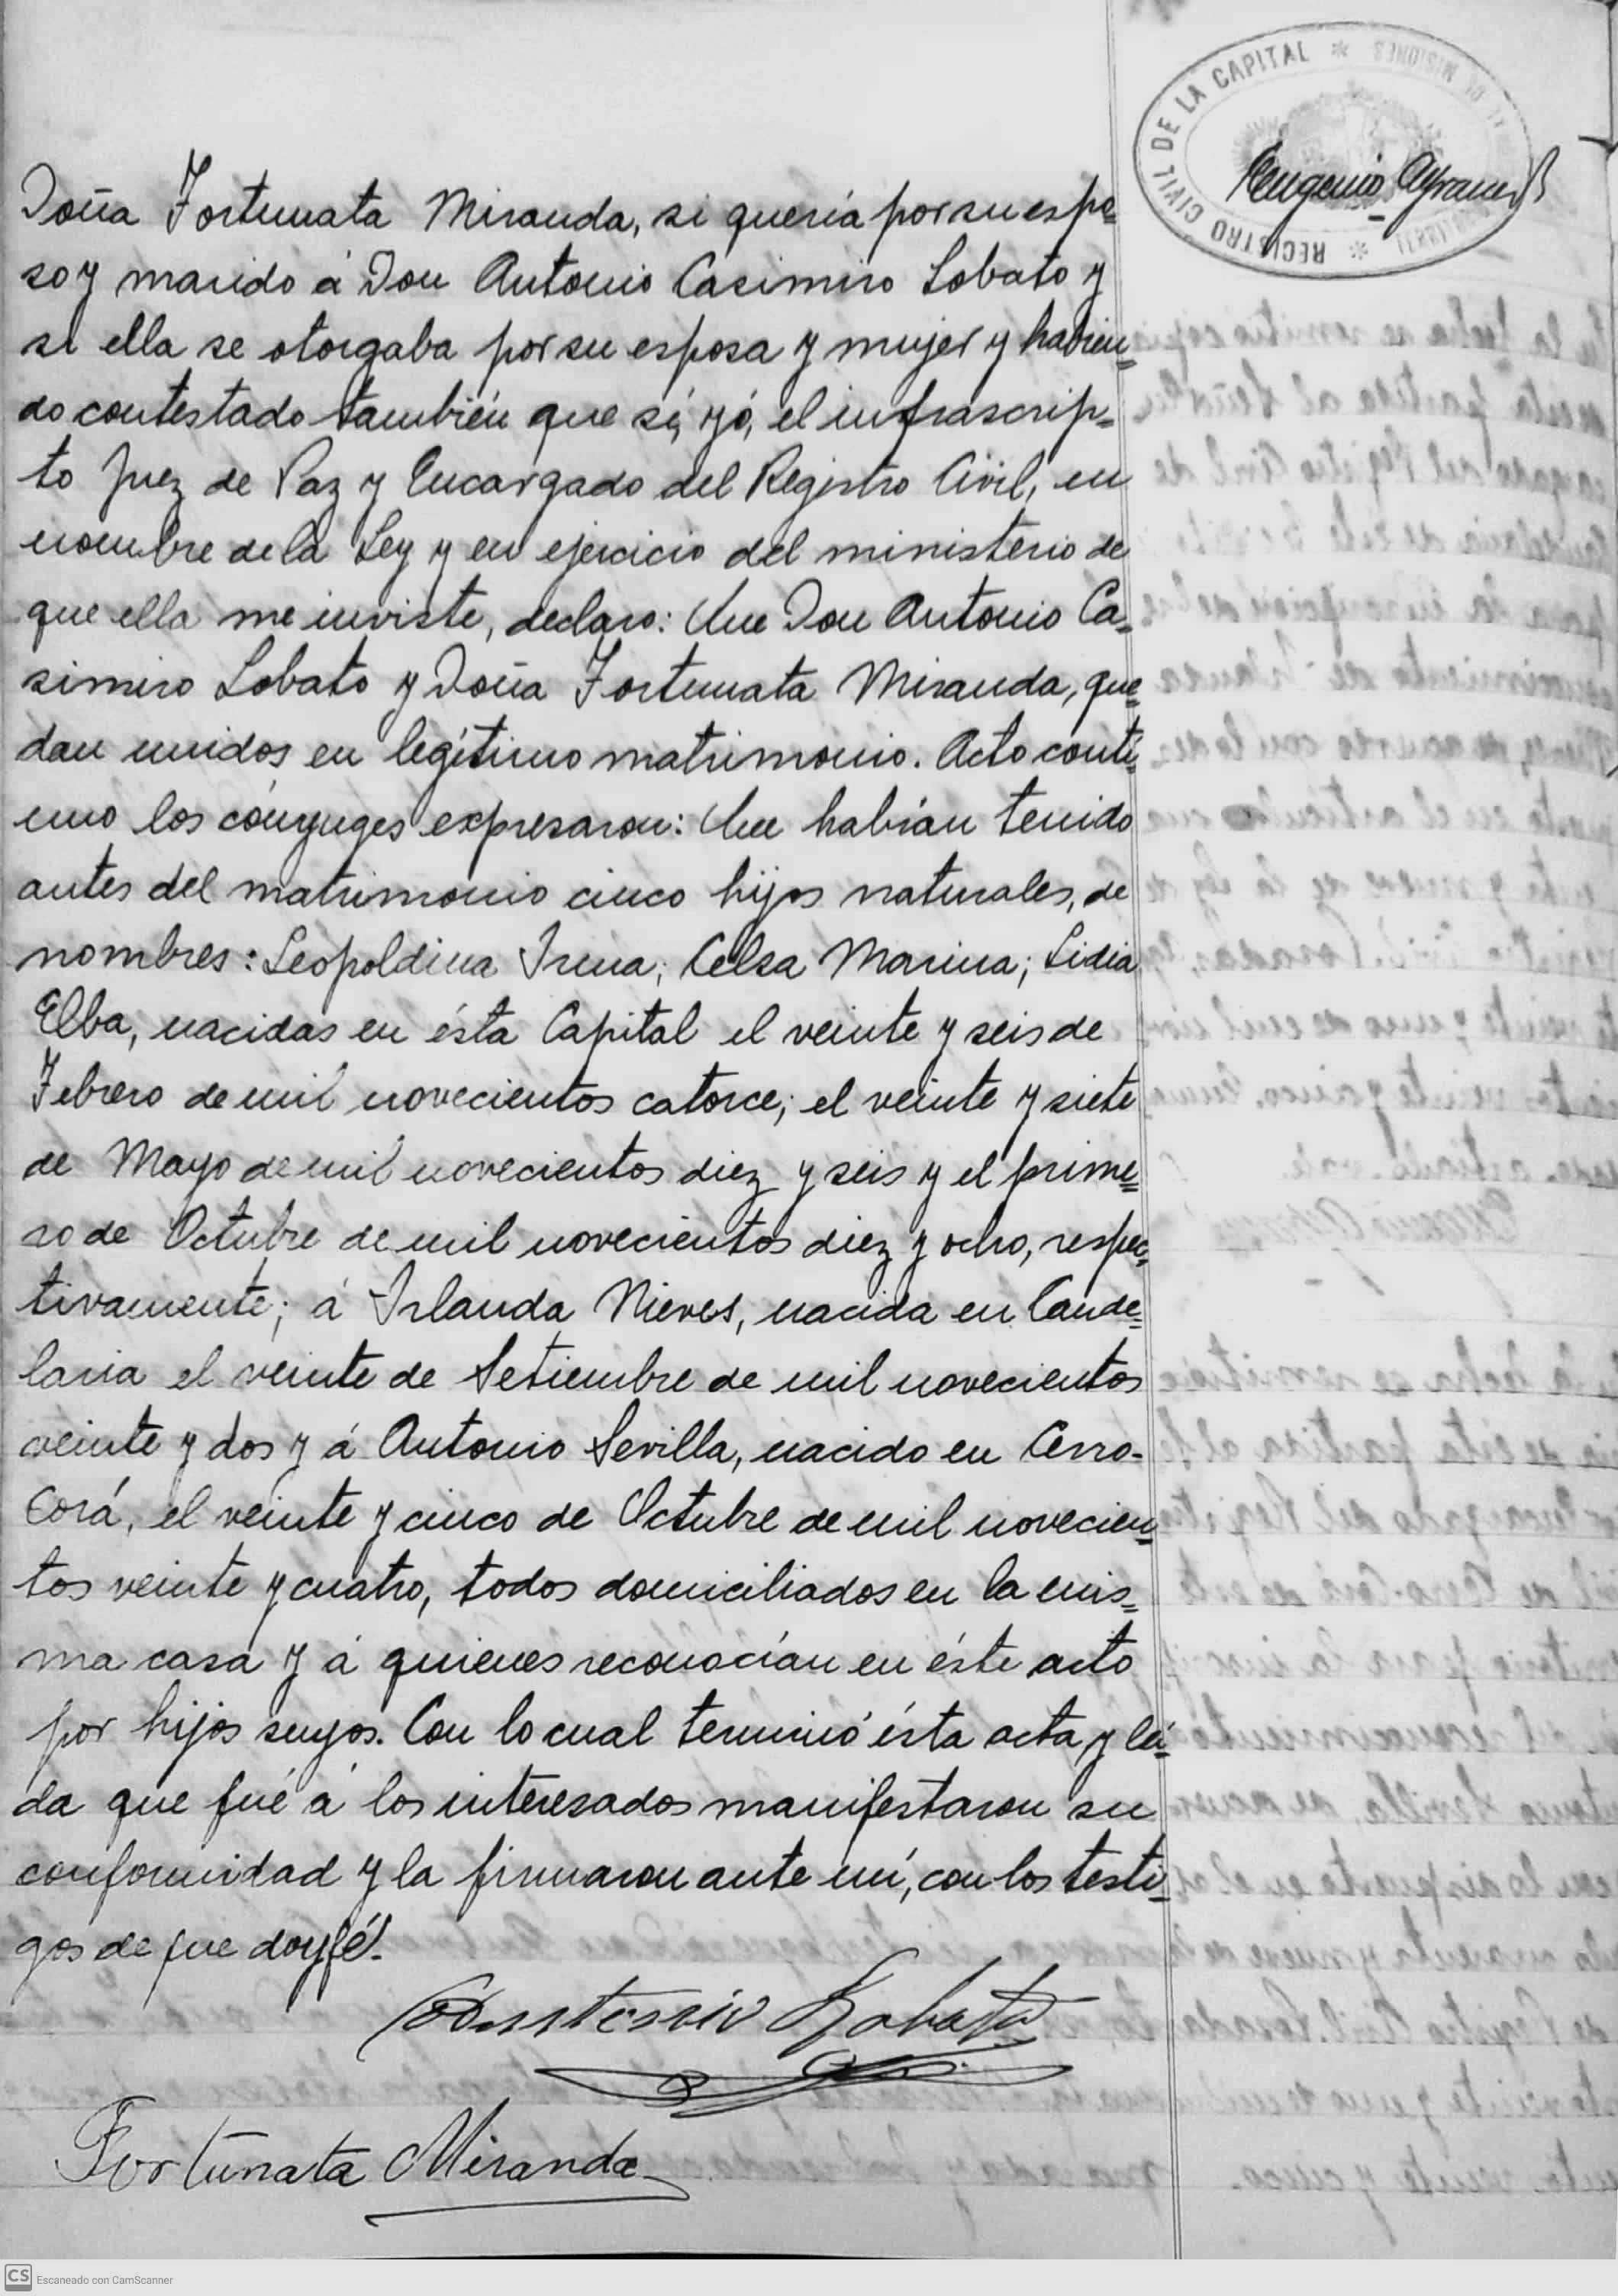 REGISTRO CIVIL DE LA CAPITAL * MISIONES *
Eugenio
Doña Fortunata Miranda, si quería por su espo=
so y marido á Don Antonio Casimiro Lobato y
si ella se otorgaba por su esposa y mujer y habien=
do contestado también que sí, yó, el infrascrip=
to Juez de Paz y Encargado del Registro Civil, en
nombre de la Ley y en ejercicio del ministerio de
que ella me inviste, declaro: Que Don Antonio Ca=
simiro Lobato y Doña Fortunata Miranda, que=
dan unidos en legítimo matrimonio. Acto conti=
nuo los cónyuges expresaron: Que habían tenido
antes del matrimonio cinco hijos naturales, de
nombres: Leopoldina Irma; Celsa Marina; Lidia
Elba, nacidas en ésta Capital el veinte y seis de
Febrero de mil novecientos catorce; el veinte y siete
de Mayo de mil novecientos diez y seis y el prime=
ro de Octubre de mil novecientos diez y ocho, respec=
tivamente; á Irlanda Nieves, nacida en Cande=
laria el veinte de Setiembre de mil novecientos
veinte y dos y á Antonio Sevilla, nacido en Cerro-
Corá, el veinte y cinco de Octubre de mil novecien=
tos veinte y cuatro, todos domiciliados en la mis=
ma casa y á quienes reconocían en éste acto
por hijos suyos. Con lo cual terminó ésta acta y leí=
da que fué á los interesados manifestaron su
conformidad y la firmaron ante mí, con los testi=
gos de que doy fé.
Antonio Lobato
Fortunata Miranda
CS Escaneado con CamScanner